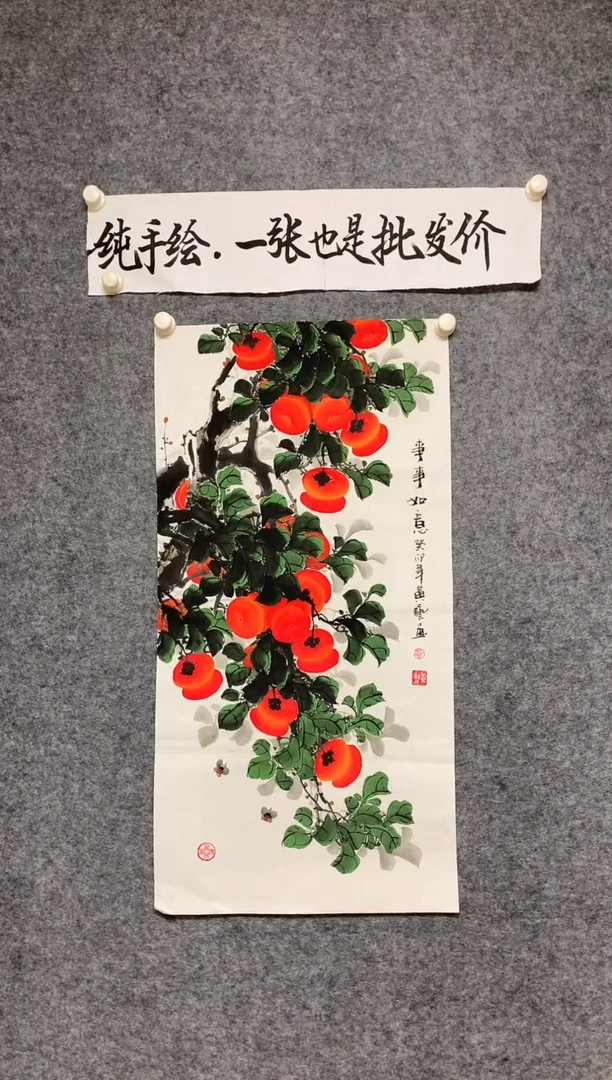 纯手绘.一张也是批发价
事事如意癸卯年黄艺画